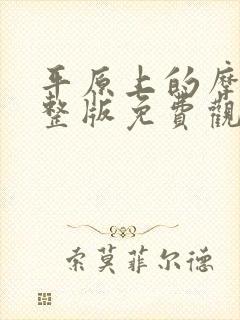 平原上的摩
整版免費觀
索莫菲尔德